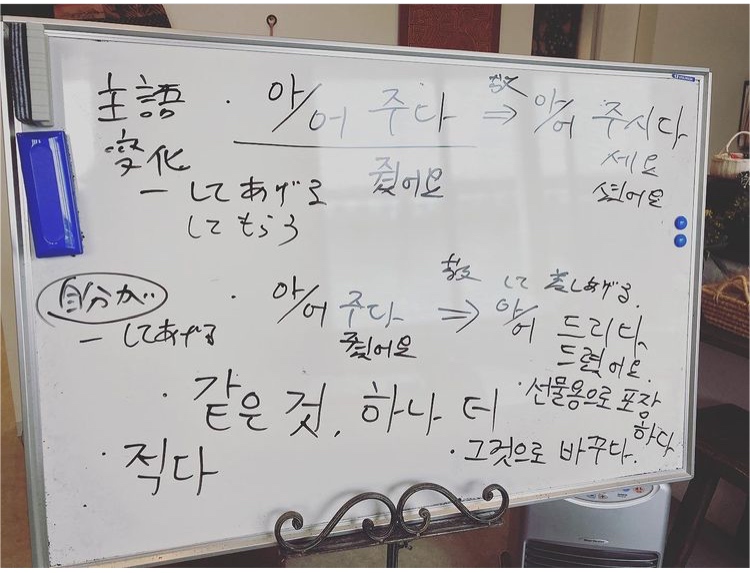 主語 ・ 아/어 주다 敬⇒ 아/어 주시다
変化 줬어요 세요
ーしてあげる 셨어요
してもらう
自分が ・ 아/어 주다 敬⇒ して差しあげる。
ーしてあげる 줬어요 아/어 드리다
드렸어요.
・ 같은 것, 하나 더 ・선물용으로 포장하다
・ 적다 ・그것으로 바꾸다.